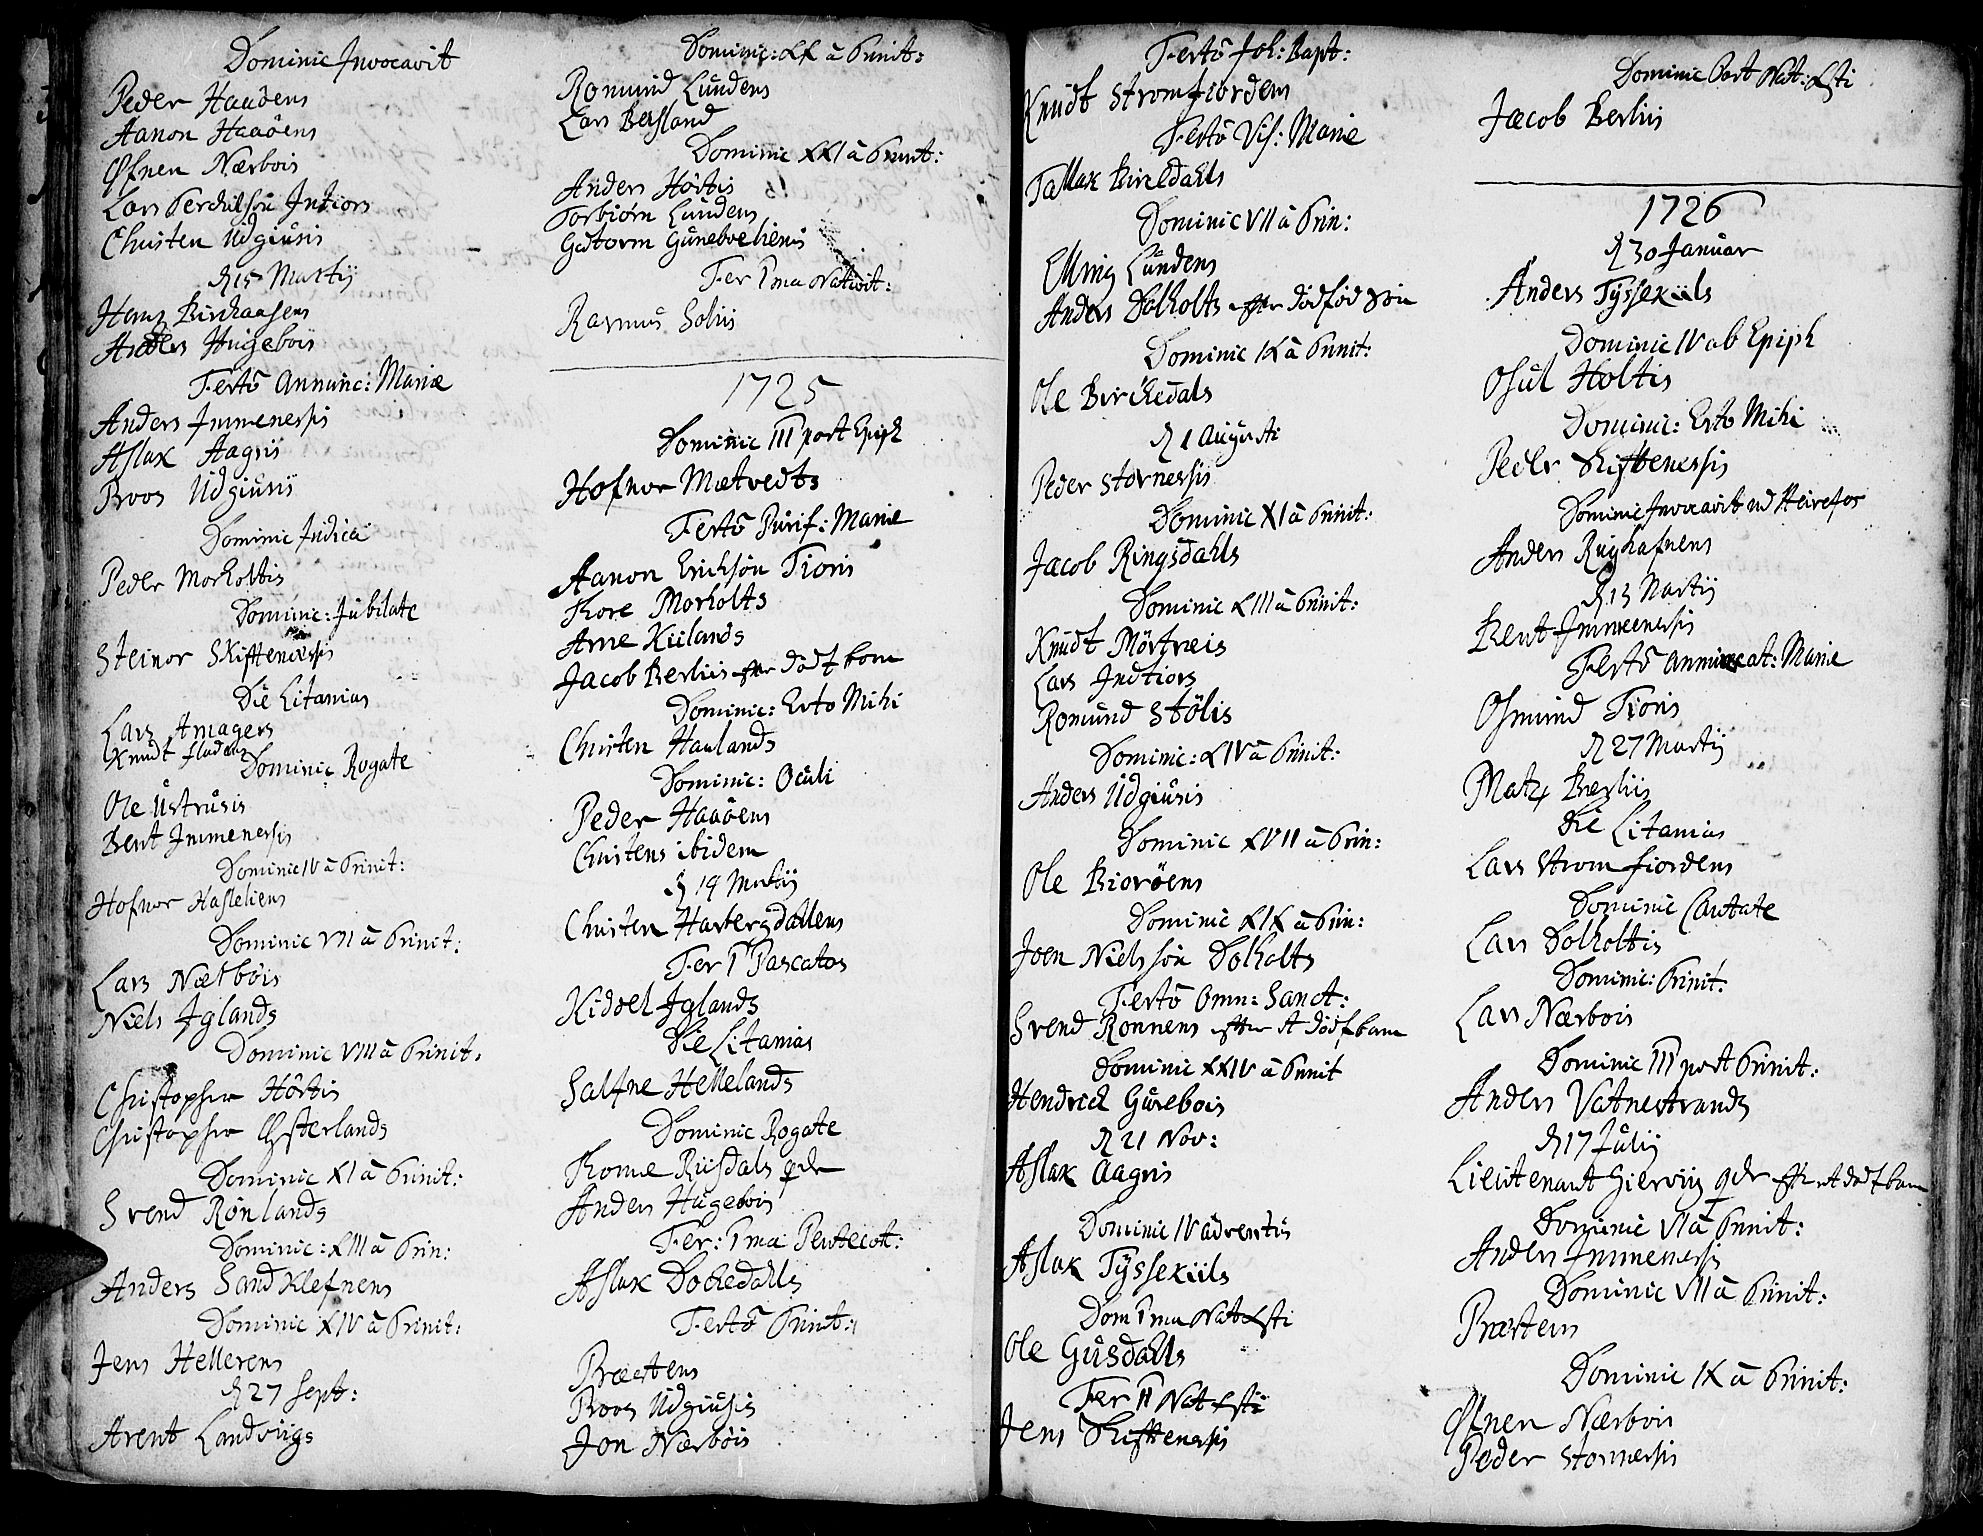 Dominic Invocavit
Peder Haaöens
Aanon Haaöens
Øfnen Nærbois
Lars Perchilsøn Indtiors
Christen Udgiusis
d 15 Martij
Hans Birchaasens
Anders Hugebois
Festo Annunc: Mariæ
Anders Immenessis
Aslax Aagris
Roos Udgiusis
Dominic Judica
Peder Morholtis
Dominic: Jubilate
Steinor Skiftenessis
Die Litanias
Lars Amagers
Knudt
Dominic Rogate
Ole Ustrusis
Bent Immenessis
Dominic IV à Trinit:
Hofnor Hasleliens
Dominic VII à Trinit:
Lars Nætbois
Niels Iglands
Dominic VIII à Trinit:
Christopher Hörtis
Christopher Østerlands
Dominic XI à Trinit:
Svend Rönlands
Dominic: XIII à Trin:
Anders Sandklefnens
Dominic XIV à Trinit:
Jens Hellerens
d 27 Sept:
Arent Landvigs
Dominic: XX à Trinit:
Romund Lundens
Lars Berland
Dominic XXI à Trinit:
Anders Hörtis
Torbiörn Lundens
Gutorm
Fer 1ma Nativit:
Rasmus Solus
1725
Dominic III post Epiph
Hofnor Mætvedts
Festo Purif: Mariæ
Aanon Erichsön Tioris
Thore Morholts
Arne Kiilands
Jacob Berliis efter dödf barn
Dominic: Esto Mihi
Christen Haulands
Dominic: Oculi
Peder Haaöens
Christens ibidem
d 19 Martij
Christen Harbergdallens
Fer 1 Pascatos
Kiddel Iglands
Die Litanias
Salfne Hellelands
Dominic Rogate
Thome Riisdals qvde
Anders Hugebois
Fer: 1ma Pentecost:
Aslax Dochedahls
Festo Trinit:
Præstens
Roos Udgiusis
Jon Nærbois
Festo Joh: Bapt:
Knudt Stromfiordens
Festo Vis: Mariæ
Tallax Birkedahls
Dominic VII à Trin:
Elling Lundens
Anders Dolholts efter dödföd
Dominic IX à Trinit:
Ole Birchedals
d 1 Augusti
Peder Stornessis
Dominic XI à Trinit:
Jacob Ringsdahls
Dominic XIII à Trinit:
Knudt Mörtveis
Lars Indtiors
Romund Stölis
Dominic: XIV à Trinit:
Anders Udgiusis
Dominic XVII à Trin:
Ole Biorøens
Dominic XIX à Trin:
Joen Nielssön Dolholts
Festo Omn: Sanct:
Svend Ronnens efter et dödf barn
Dominic XXIV à Trinit
Hendrich Gurebois
d 21 Nov:
Aslax Aagris
Dominic IV adventus
Aslak Tyssekiils
Dom 1ma Nat Xsti
Ole Gusdahls
Fer II Nat Xsti
Jens Skiftenessis
Dominic Post Nat: Xsti
Jacob Berliis
1726
d 30 Januar
Anders Tyssekiils
Dominic IV ab Epiph
Osul Holtis
Dominic: Esto Mihi
Peder Skiftenessis
Dominic Invocavit ud Heirefos
Anders Rughafnens
d 13 Martij
Bent Immenessis
Festo Annunciat: Mariæ
Osmund Tioris
d 27 Martij
Matz Berliis
Die Litanias
Lars Stromfiordens
Dominic Cantate
Lars Dolholtis
Dominic: Trinit.
Lars Nærbois
Dominic III post Trinit:
Anders Vatnestrands
d 17 Julij
Lieutenant Giervig qvde efter et dödf barn
Dominic VI à Trinit:
Anders Immenessis
Dominic VII à Trinit:
Præstens
Dominic IX à Trinit:
Øfnen Nærbois
Peder Stornessis